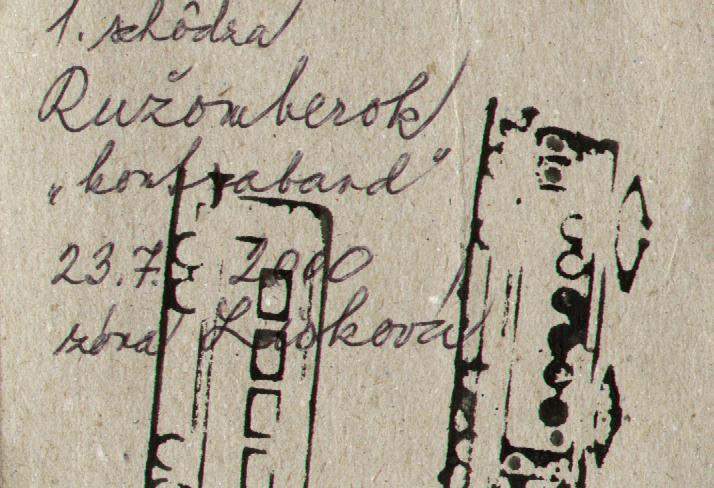 1. schôdza
Ružomberok
„kontraband"
23.7. 2000
zóna Laskova